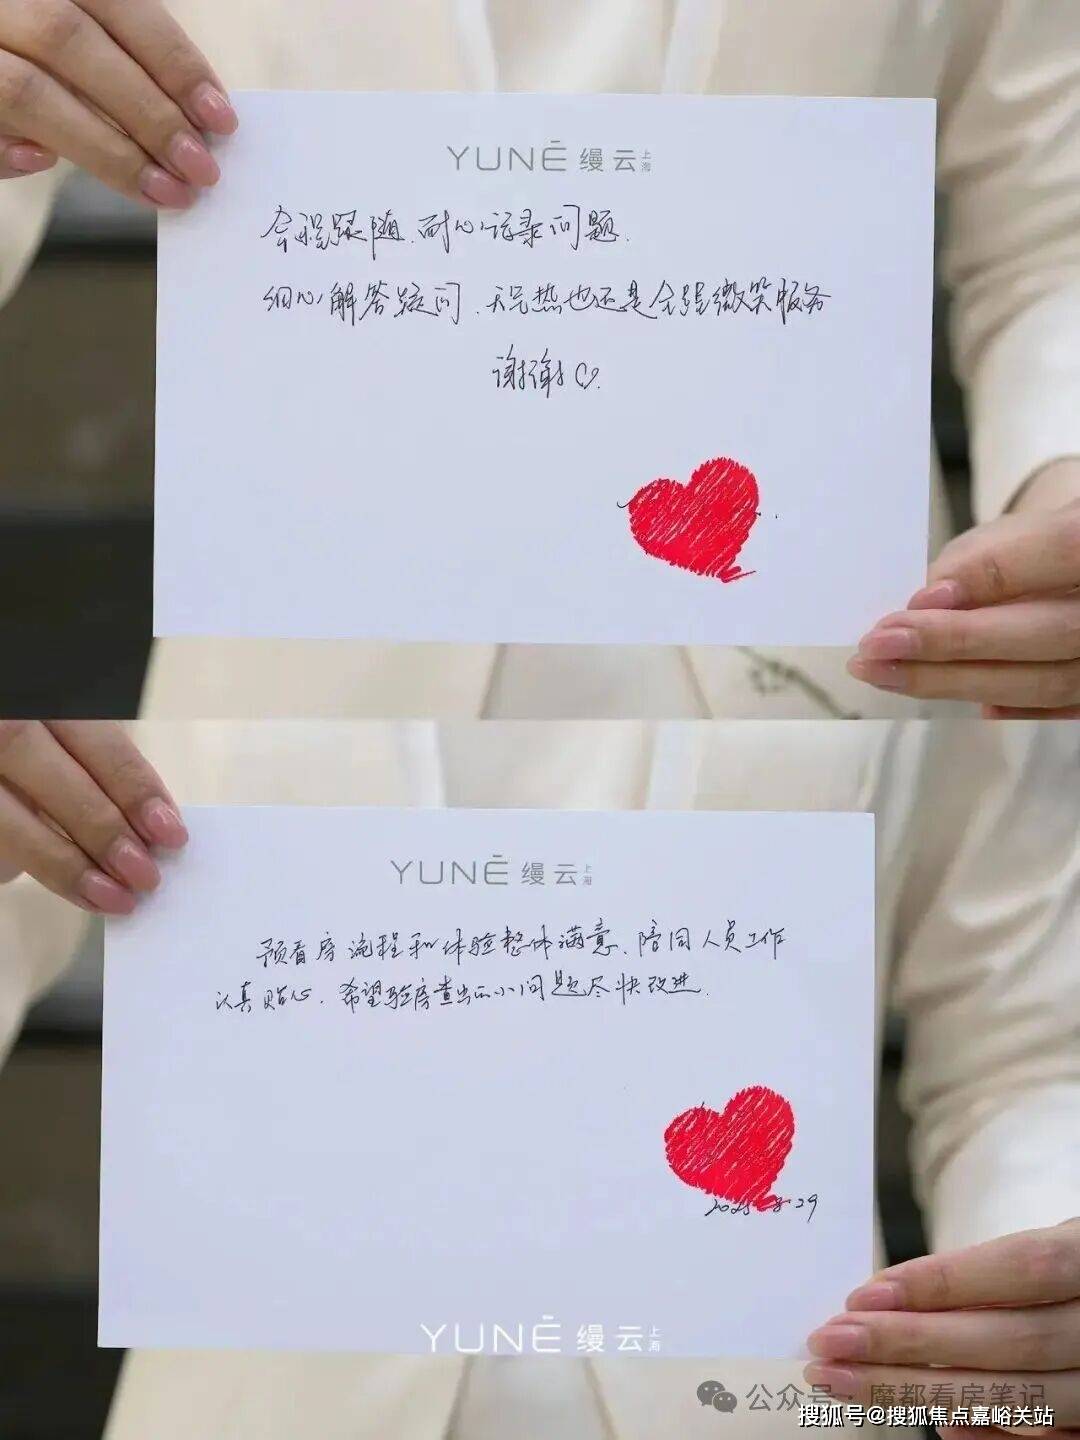 YUNĒ 缦云 上海
全程跟随、耐心记录问题.
细心解答疑问、天气热也还是全程微笑服务
谢谢♡.
YUNĒ 缦云 上海
预看房流程和体验整体满意、陪同人员工作
认真贴心. 希望验房查出的小问题尽快改进.
2025.8.29
YUNĒ 缦云 上海
公众号·魔都看房笔记
搜狐号@搜狐焦点嘉峪关站